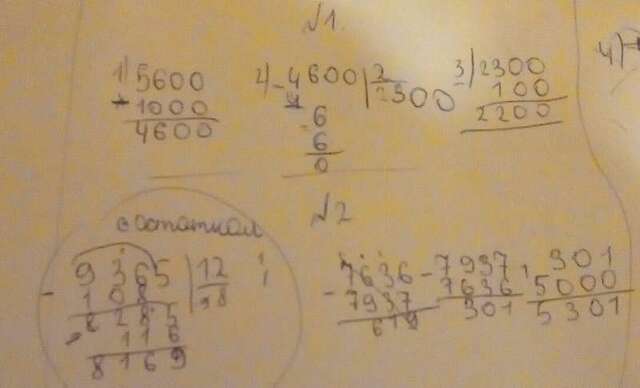 №1.
1) 5600
1000
4600
2) - 4600 | 2
4
2300
- 6
6
0
3) 2300
- 100
2200
4)
№2
с остатком
- 9365 | 12
108
98
8285
116
8169
- 7636
7937
- 7937
7636
301
301
5000
5301